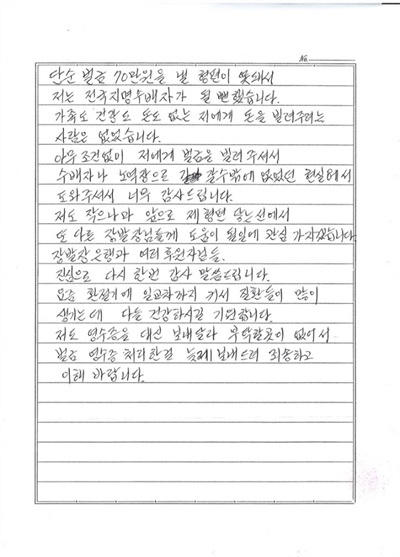 No.
단순 벌금 70만원을 낼 형편이 못돼서
저는 전국지명수배자가 될 뻔했습니다.
가족도 건강도 돈도 없는 저에게 돈을 빌려주려는
사람은 없었습니다.
아무 조건없이 저에게 벌금을 빌려 주셔서
수배자나 노역장으로 갈수밖에 없었던 현실에서
도와주셔서 너무 감사드립니다.
저도 작으나마 앞으로 제 형편 닿는선에서
또 다른 장발장님들께 도움이 될일에 관심 가지겠습니다.
장발장 은행과 여러 후원자님들.
진심으로 다시 한번 감사 말씀드립니다.
요즘 환절기에 일교차까지 커서 질환들이 많이
생기는데 다들 건강하시길 기원합니다.
저도 영수증을 대신 보내달라 부탁할곳이 없어서
벌금 영수증 처리한걸 늦게 보내드려 죄송하고
이해 바랍니다.